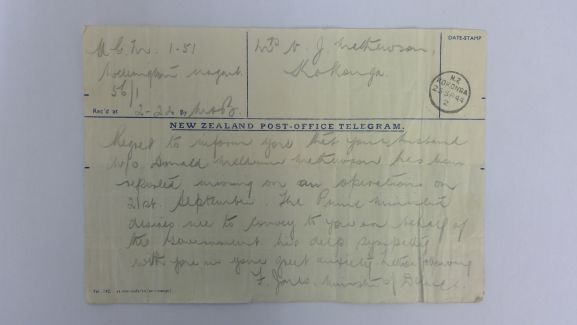 1-51
Mrs V. J. Mathewson,
DATE-STAMP
Wellington Urgent
Kokonga.
56/1
N.Z.
KOKONGA
23 SP 44
2
Rec'd at 2-22 By
NEW ZEALAND POST-OFFICE TELEGRAM.
Regret to inform you that your husband
W/O Donald Mathewson has been
reported missing on air operations on
21st. September. The Prime Minister
desires me to convey to you on behalf of
the Government his deep sympathy
with you in your great anxiety
F. Jones. Minister of Defence.